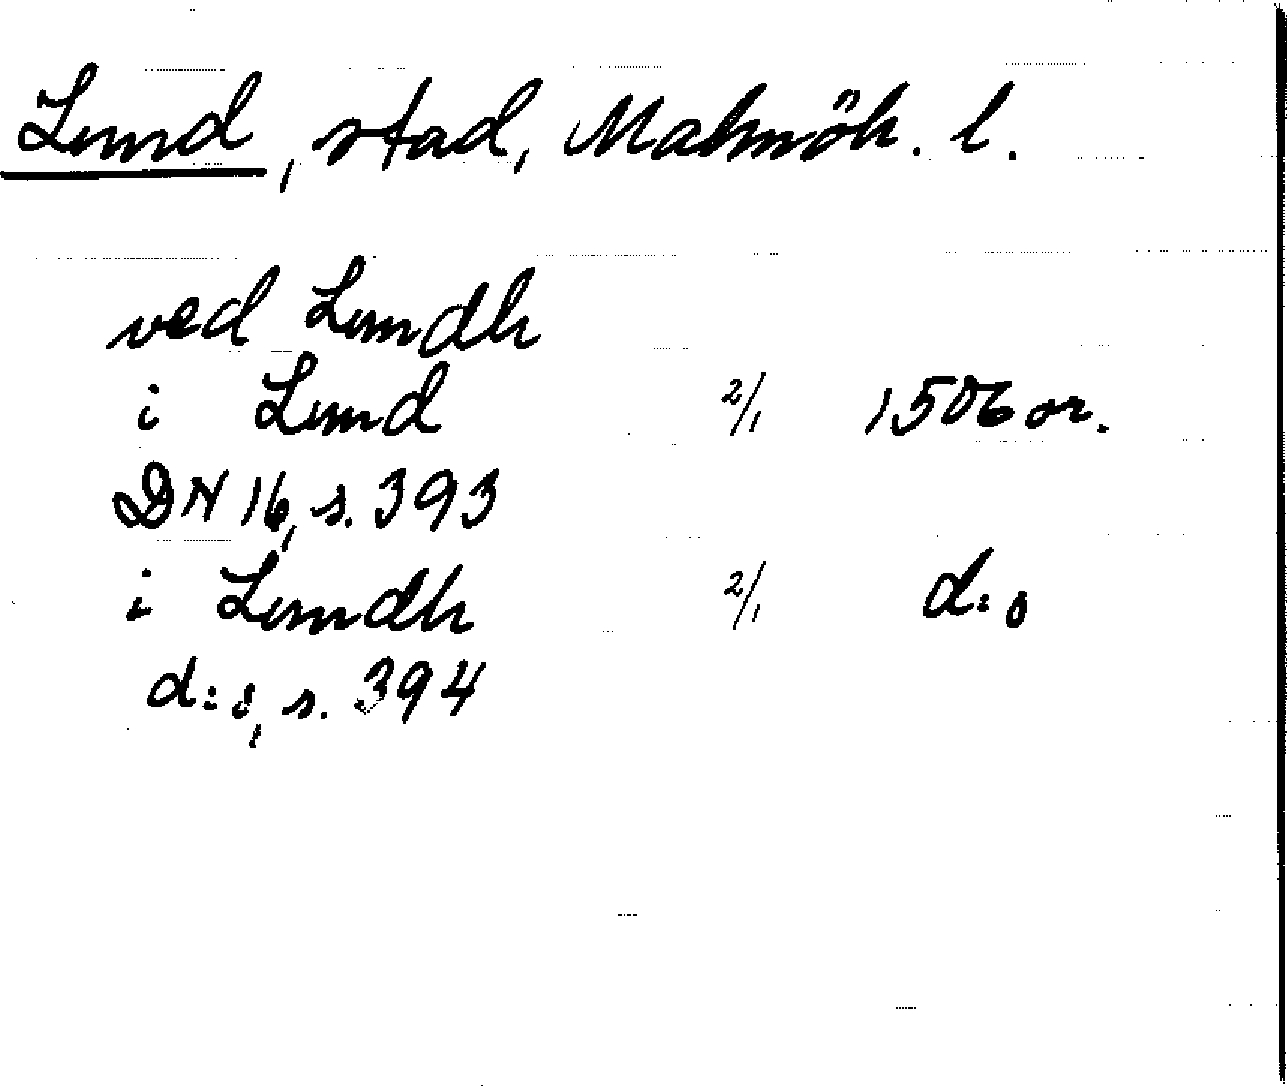 Lund, stad, Malmöh. l.
ved Lundh
i Lund 2/1 1506 or.
DN 16, s. 393
i Lundh 2/1 d:o
d:o, s. 394